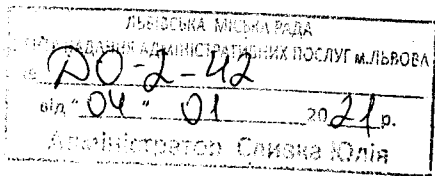 ЛЬВІВСЬКА МІСЬКА РАДА
НАДАННЯ АДМІНІСТРАТИВНИХ ПОСЛУГ м.ЛЬВОВА
№ ДО-2-42
від "04" 01 2021 р.
Адміністратор Слизка Юлія